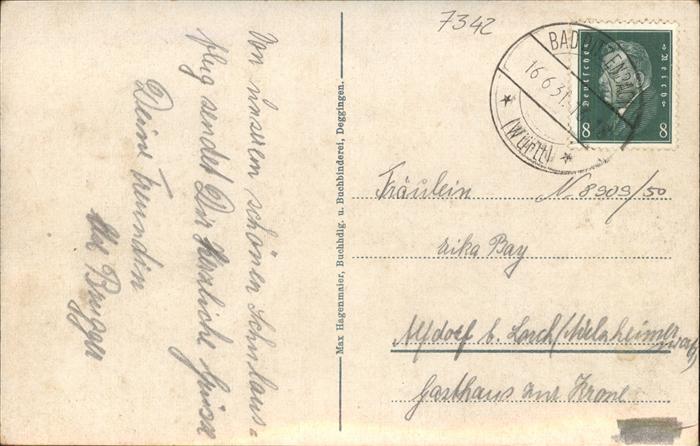 Von unseren schönen Schulaus=
flug sendet Dir Herzliche Grüsse
Deine Freundin
Max Hagenmaier, Buchhdlg. u. Buchbinderei, Deggingen.
7342
BAD DITZENBACH
16.6.31.
(Württ)
Deutsches Reich
8 8
Fräulein
N 8909/50
Erika Bay
Alfdorf b. Lorch/Welzheimer
wald
Gasthaus zur Krone